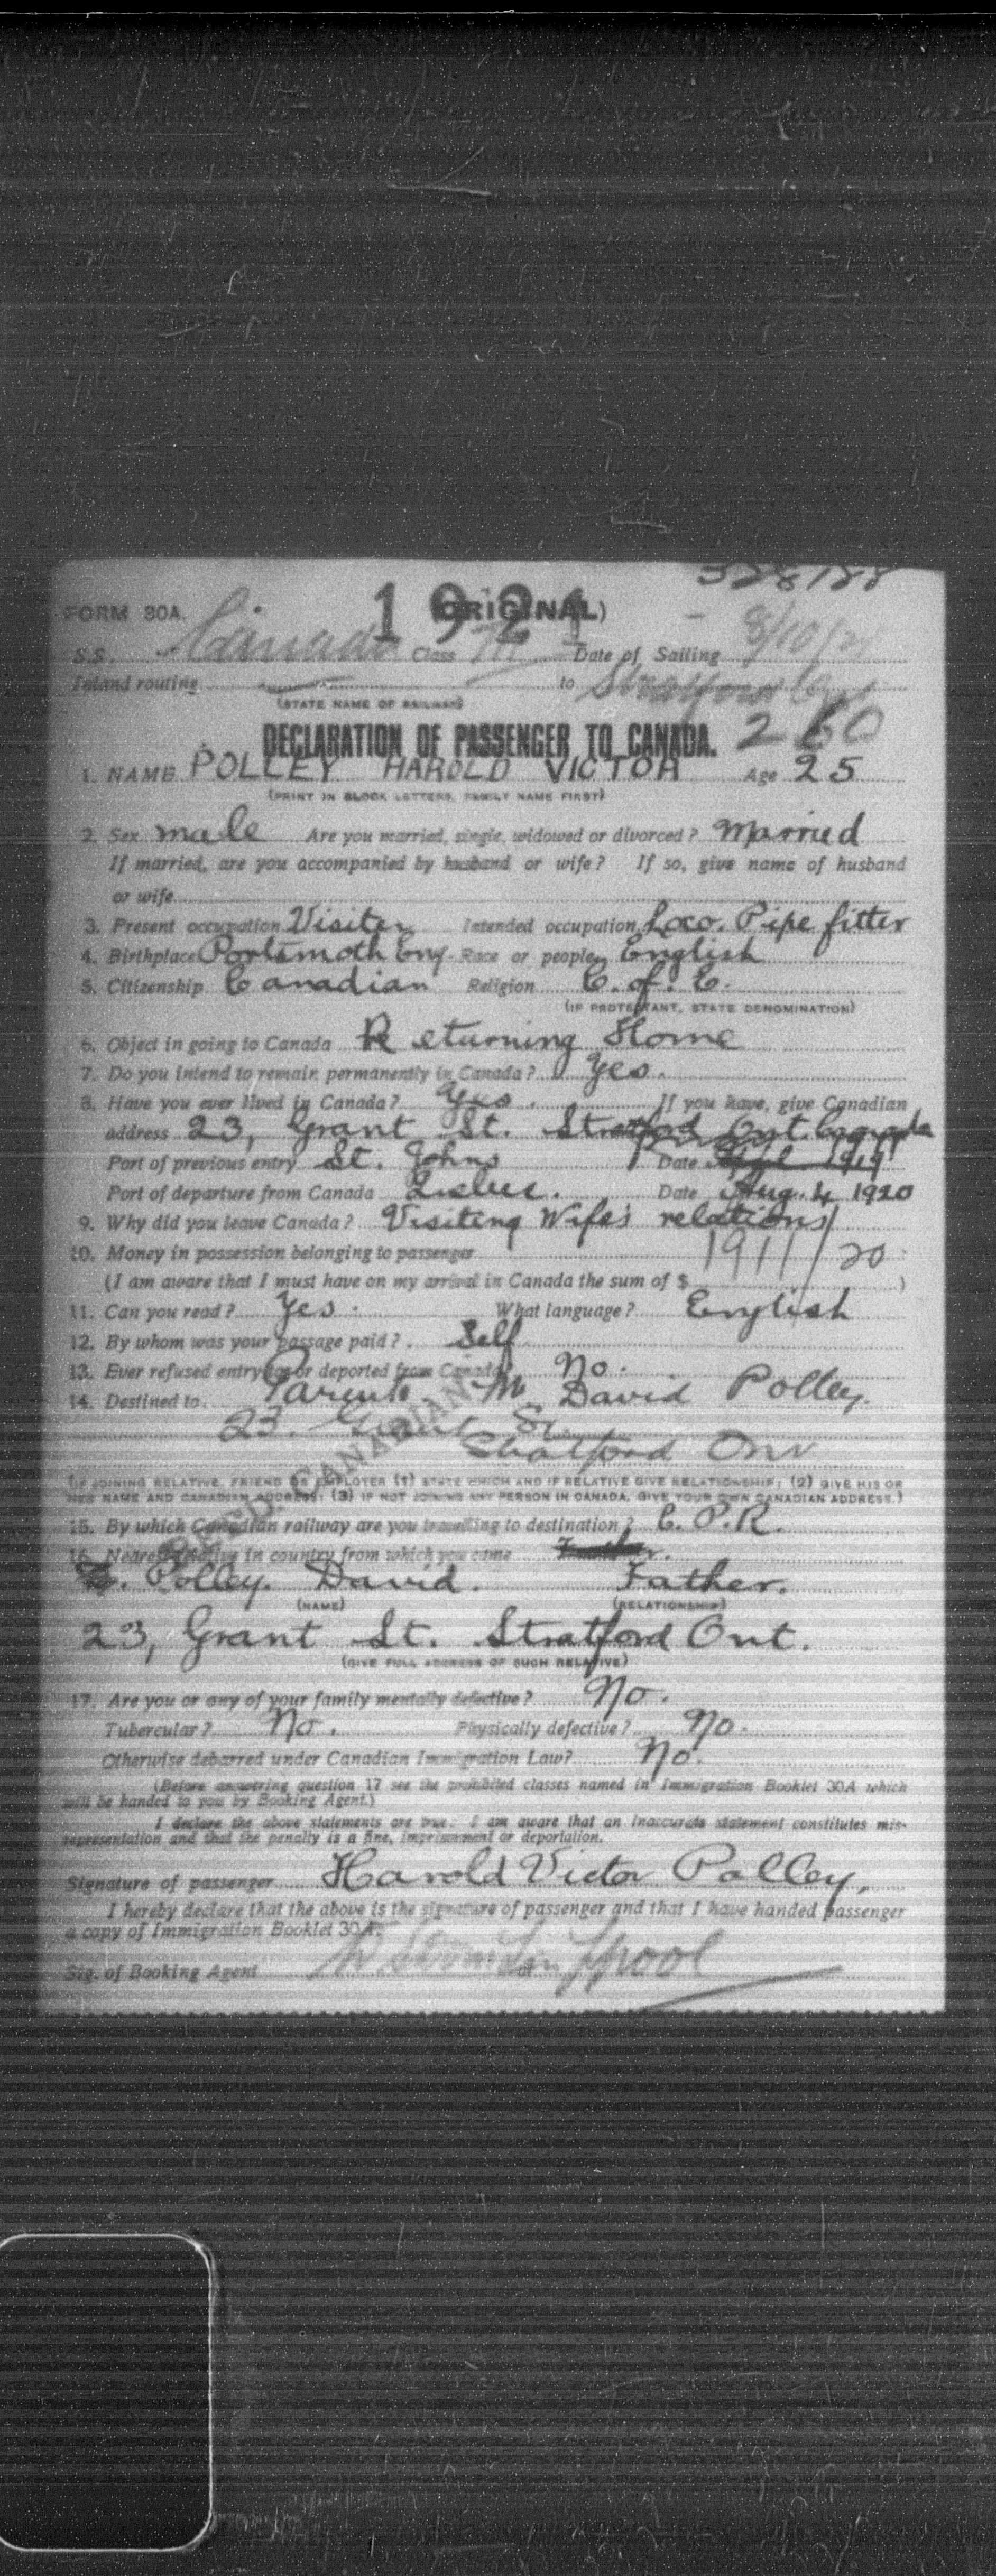 328188
FORM 30A. 1921 (ORIGINAL)
S.S. Canada Class Date of Sailing 8/10/21
Inland routing to Stratford Ont
(STATE NAME OF RAILWAY)
DECLARATION OF PASSENGER TO CANADA. 260
1. NAME POLLEY HAROLD VICTOR Age 25
(PRINT IN BLOCK LETTERS, FAMILY NAME FIRST)
2. Sex male Are you married, single, widowed or divorced? Married
If married, are you accompanied by husband or wife? If so, give name of husband
or wife
3. Present occupation Visiter Intended occupation Loco. Pipe fitter
4. Birthplace Portsmoth Eng. Race or people English
5. Citizenship Canadian Religion C. of. E.
(IF PROTESTANT, STATE DENOMINATION)
6. Object in going to Canada Returning Home
7. Do you intend to remain permanently in Canada? Yes.
8. Have you ever lived in Canada? Yes. If you have, give Canadian
address 23, Grant St. Stratford Ont. Canada
Port of previous entry St. Johns Date 1919
Port of departure from Canada Date Aug. 4 1920
9. Why did you leave Canada? Visiting Wife's relations
10. Money in possession belonging to passenger 1911/20
(I am aware that I must have on my arrival in Canada the sum of $ )
11. Can you read? Yes. What language? English
12. By whom was your passage paid? Self
13. Ever refused entry to or deported from Canada? No.
14. Destined to Parents Mr David Polley.
23. Grant St.
Stratford Ont
(IF JOINING RELATIVE, FRIEND OR EMPLOYER (1) STATE WHICH AND IF RELATIVE GIVE RELATIONSHIP; (2) GIVE HIS OR
HER NAME AND CANADIAN ADDRESS; (3) IF NOT JOINING ANY PERSON IN CANADA, GIVE YOUR OWN CANADIAN ADDRESS.)
CANADIAN
15. By which Canadian railway are you travelling to destination? C. P. R.
16. Nearest relative in country from which you came
Polley. David. Father.
(NAME) (RELATIONSHIP)
23, Grant St. Stratford Ont.
(GIVE FULL ADDRESS OF SUCH RELATIVE)
17. Are you or any of your family mentally defective? No.
Tubercular? No. Physically defective? No.
Otherwise debarred under Canadian Immigration Law? No.
(Before answering question 17 see the prohibited classes named in Immigration Booklet 30A which
will be handed to you by Booking Agent.)
I declare the above statements are true. I am aware that an inaccurate statement constitutes mis-
representation and that the penalty is a fine, imprisonment or deportation.
Signature of passenger Harold Victor Polley.
I hereby declare that the above is the signature of passenger and that I have handed passenger
a copy of Immigration Booklet 30A.
Sig. of Booking Agent L'pool